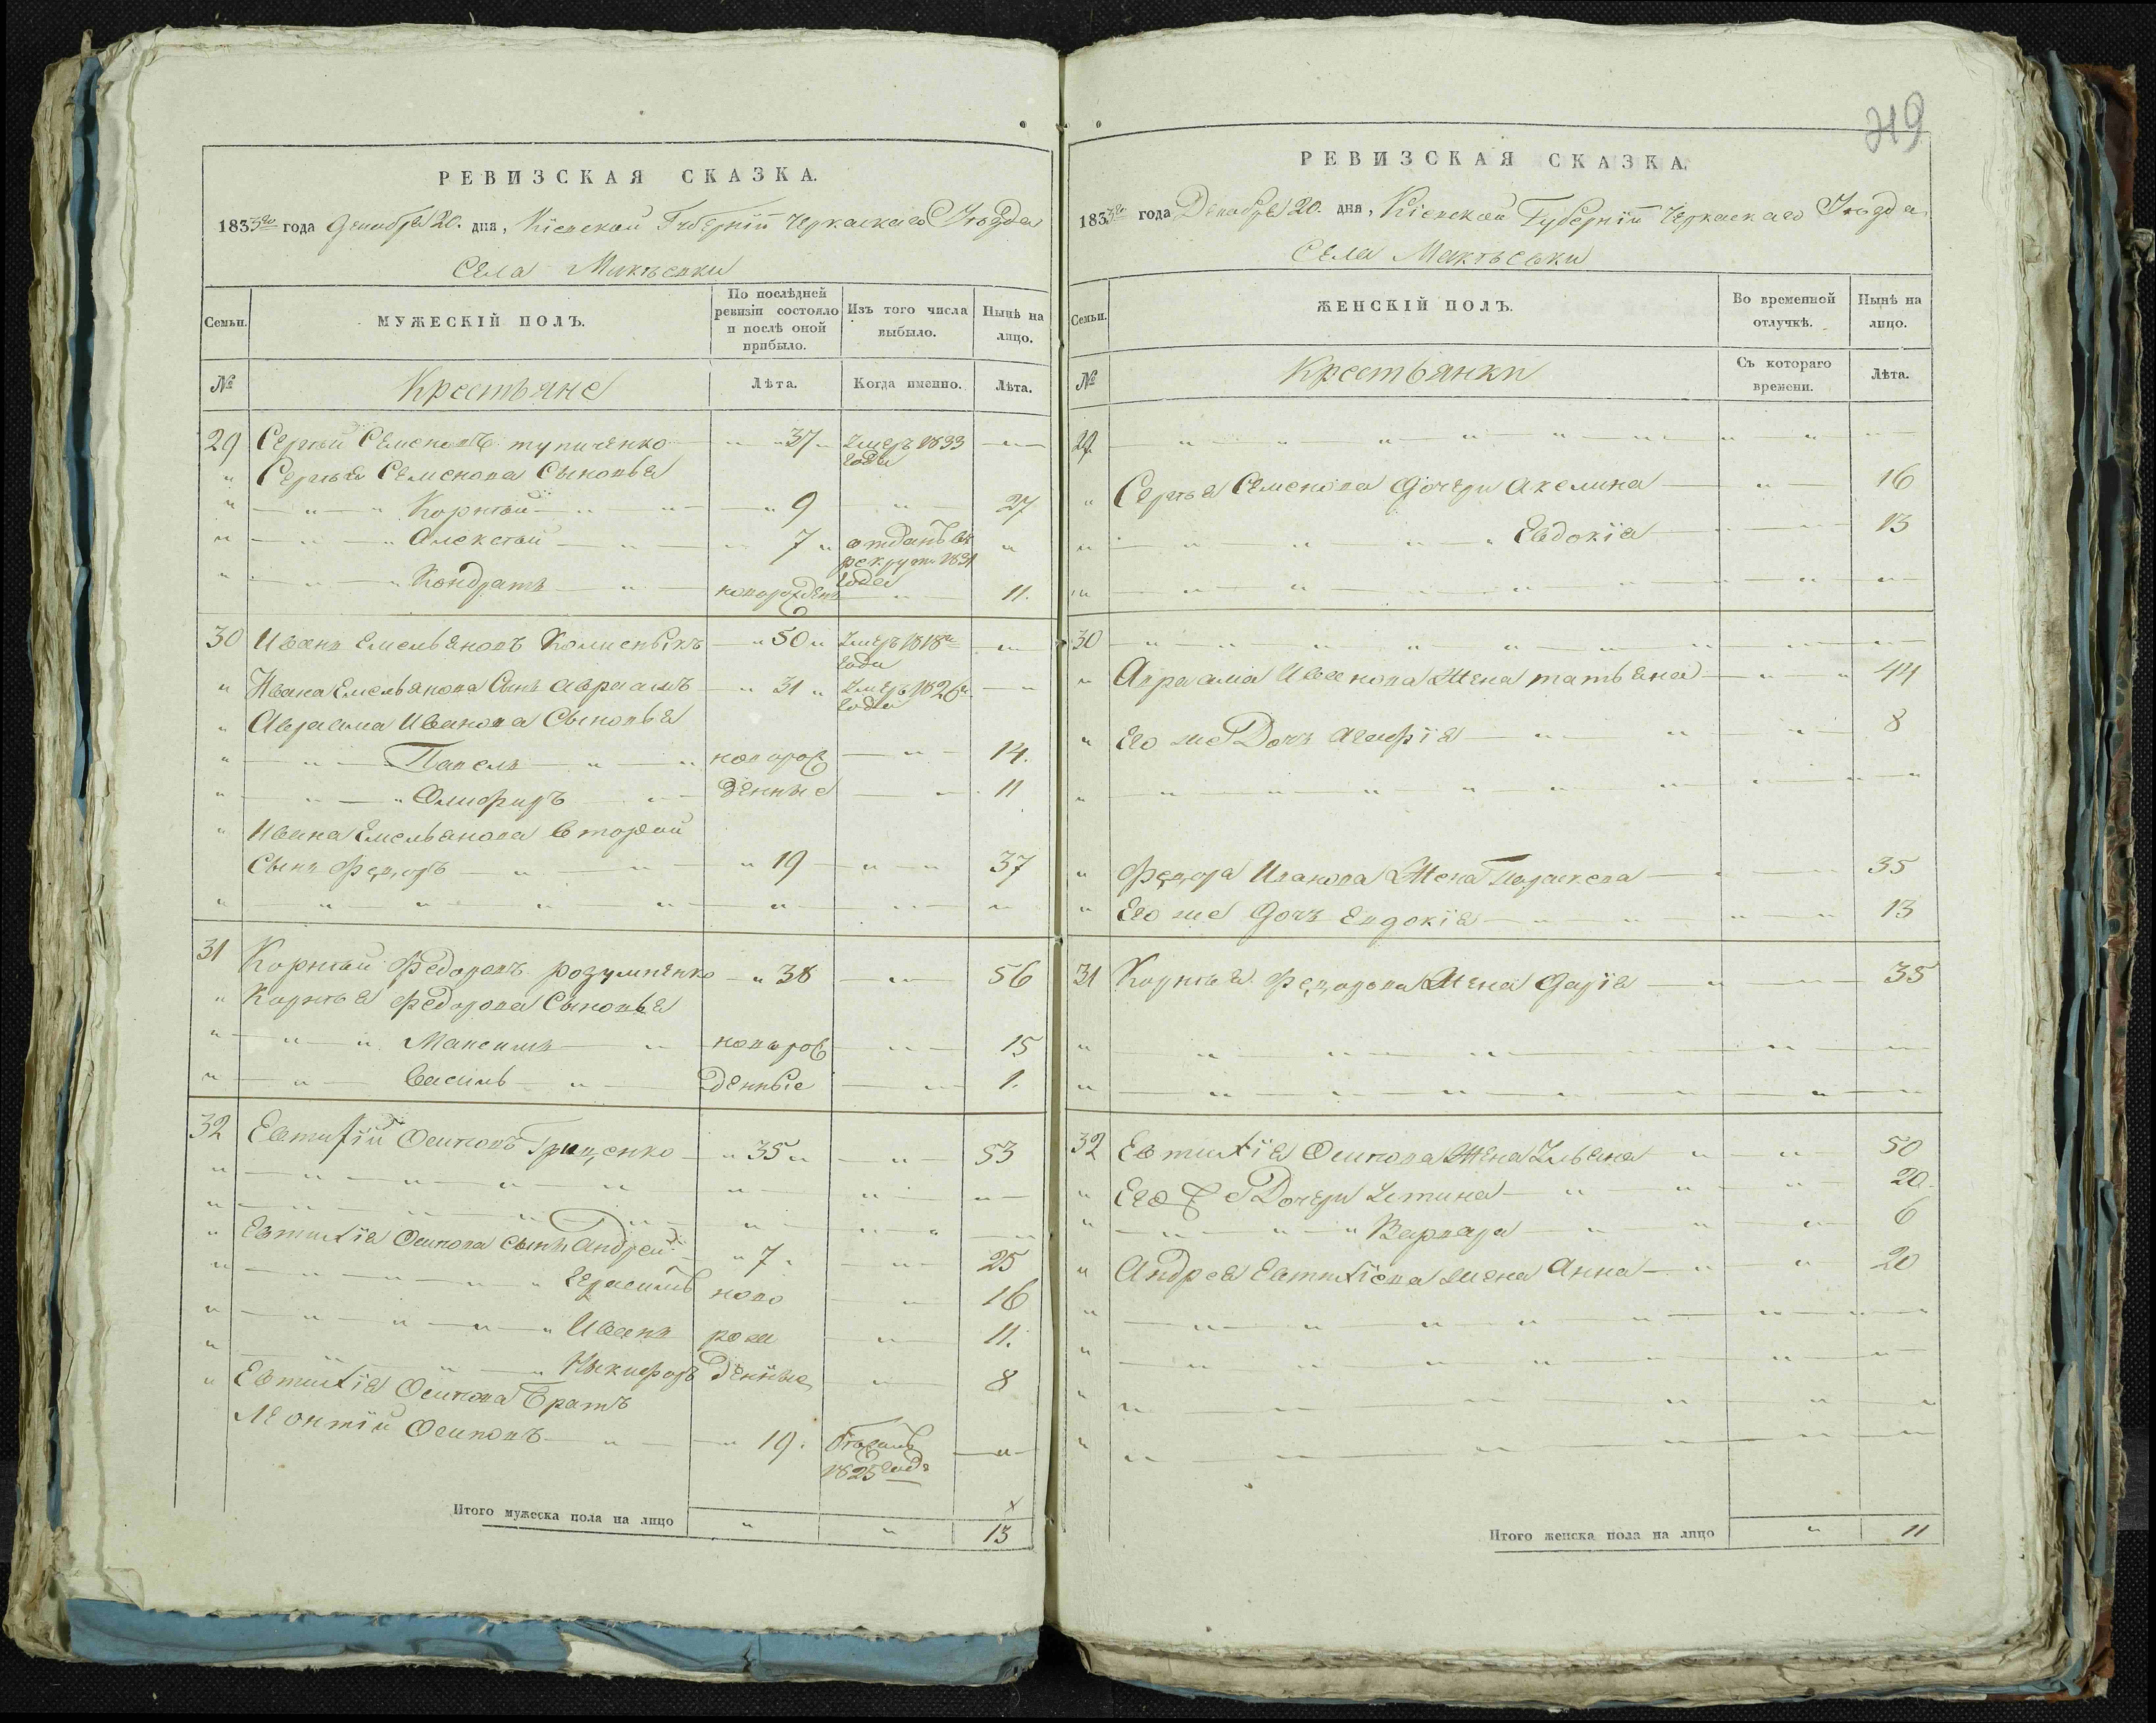 РЕВИЗСКАЯ СКАЗКА.
1833го года Декабря 20. дня, Кіевской Губерніи Черкаскаго Уѣзда
Села Макѣевки
Семьи.
МУЖЕСКІЙ ПОЛЪ.
По послѣдней ревизіи состояло и послѣ оной прибыло.
Изъ того числа выбыло.
Нынѣ на лицо.
№
Крестьяне
Лѣта.
Когда именно.
Лѣта.
29 Сергѣй Семеновъ тупиченко 37 Умеръ 1833 года
Сергѣя Семенова Сыновья
Корнѣй 9 27
Алексѣй 7 отданъ въ рекруты 1831 года
Кондратъ новорожденъ 11.
30 Иванъ Емельяновъ 50 Умеръ 1818го года
Ивана Емельянова Сынъ авраамъ 31 Умеръ 1826го года
Авраама Иванова Сыновья
Павелъ новорож 14.
Олиферъ денные 11
Ивана Емельянова второй
Сынъ Федоръ 19 37
31 Корнѣй Федоровъ розумненко 38 56
Корнѣя Федорова Сыновья
Максимъ новорож 15
Василь денные 1.
32 Евтихій Осиповъ Гриценко 35 53
Евтихія Осипова сынъ Андрей 7 25
Герасимъ ново 16
Иванъ рож 11.
Никифоръ денные 8
Евтихія Осипова Братъ
Леонтій Осиповъ 19. 1825 года
Итого мужеска пола на лицо 13
219
РЕВИЗСКАЯ СКАЗКА.
1833го года Декабря 20. дня, Кіевской Губерніи Черкаскаго Уѣзда
Села Макѣевки
Семьи.
ЖЕНСКІЙ ПОЛЪ.
Во временной отлучкѣ.
Нынѣ на лицо.
№
Крестьянки
Съ котораго времени.
Лѣта.
29
Сергѣя Семенова Дочери Акелина 16
Евдокія 13
30
Авраама Иванова Жена татьяна 44
Его же Дочь агафія 8
Федора Иванова Жена Параскева 35
Его же Дочь Евдокія 13
31 Корнѣя Федорова Жена Дарія 35
32 Евтихія Осипова Жена Ульяна 50
Его же Дочери Устина 20.
Варвара 6
Андрея Евтихіева жена Анна 20
Итого женска пола на лицо 11